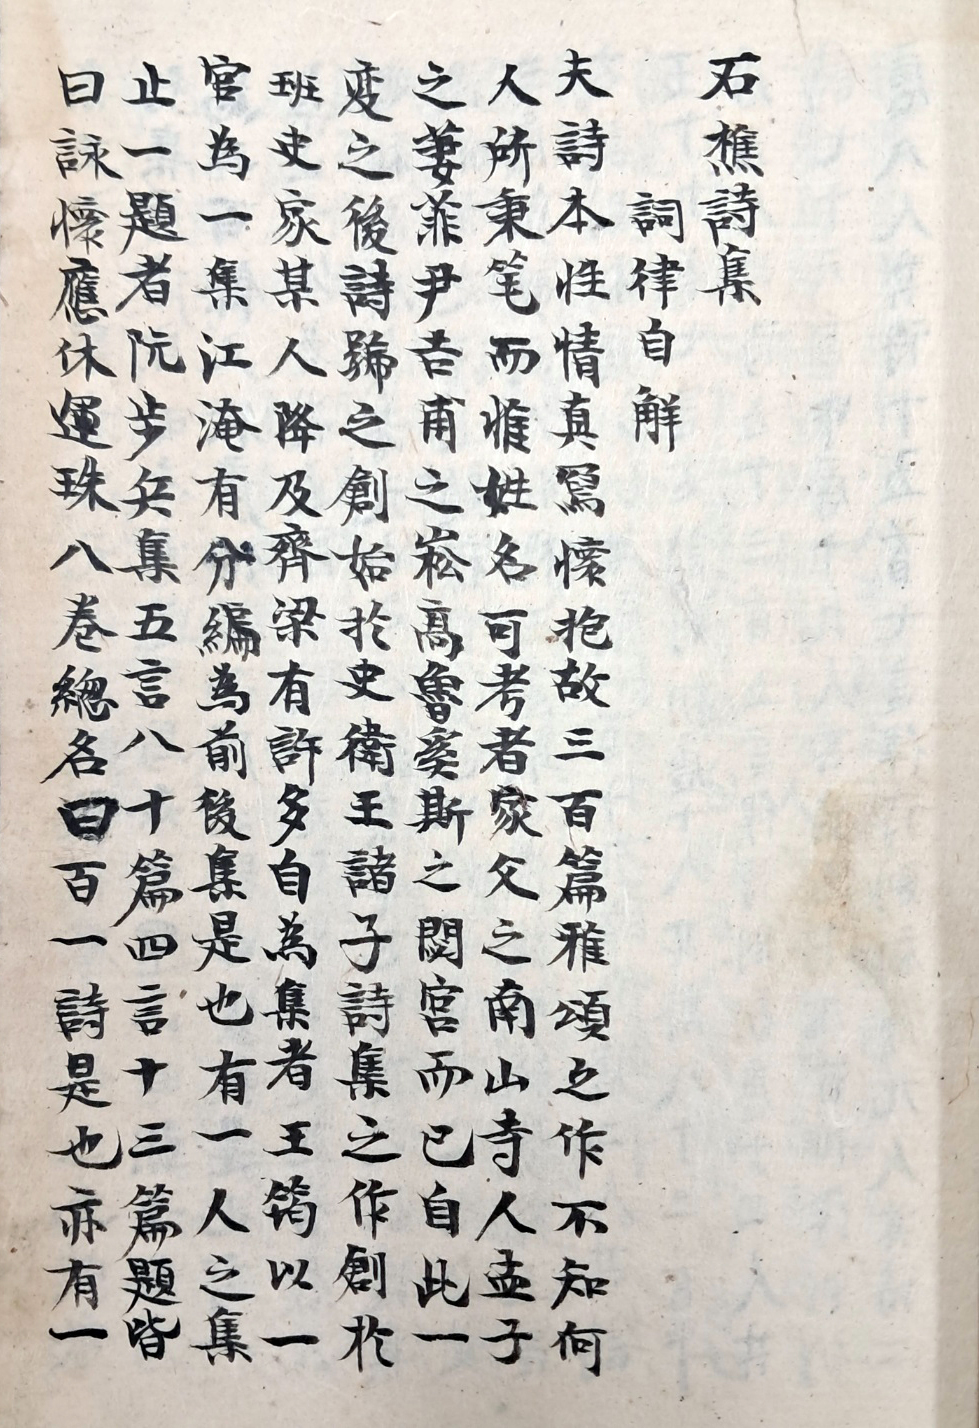 石樵詩集
詞律自解
夫詩本性情真寫懷抱故三百篇雅頌之作不知何
人所秉笔而惟姓名可考者家父之南山寺人孟子
之萋菲尹吉甫之崧高魯奚斯之閟宮而已自此一
変之後詩號之創始於史衛王諸子詩集之作創於
班史家某人降及齊梁有許多自為集者王筠以一
官為一集江淹有分編為前後集是也有一人之集
止一題者阮步兵集五言八十篇四言十三篇題皆
曰詠懷應休運珠八卷總名曰百一詩是也亦有一